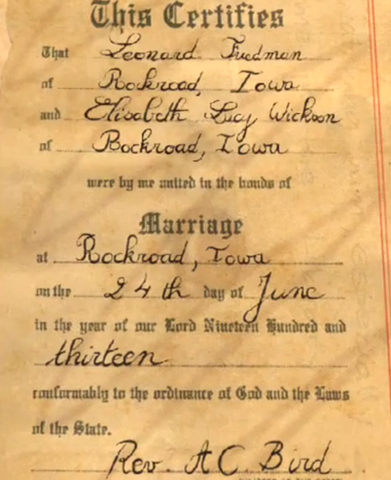 This Certifies
That Leonard Friedman
of Rockroad, Iowa
and Elisabeth Lucy Wickson
of Rockroad, Iowa
were by me united in the bonds of
Marriage
at Rockroad, Iowa
on the 24th day of June
in the year of our Lord Nineteen Hundred and
thirteen
conformably to the ordinance of God and the Laws
of the State.
Rev. A C. Bird